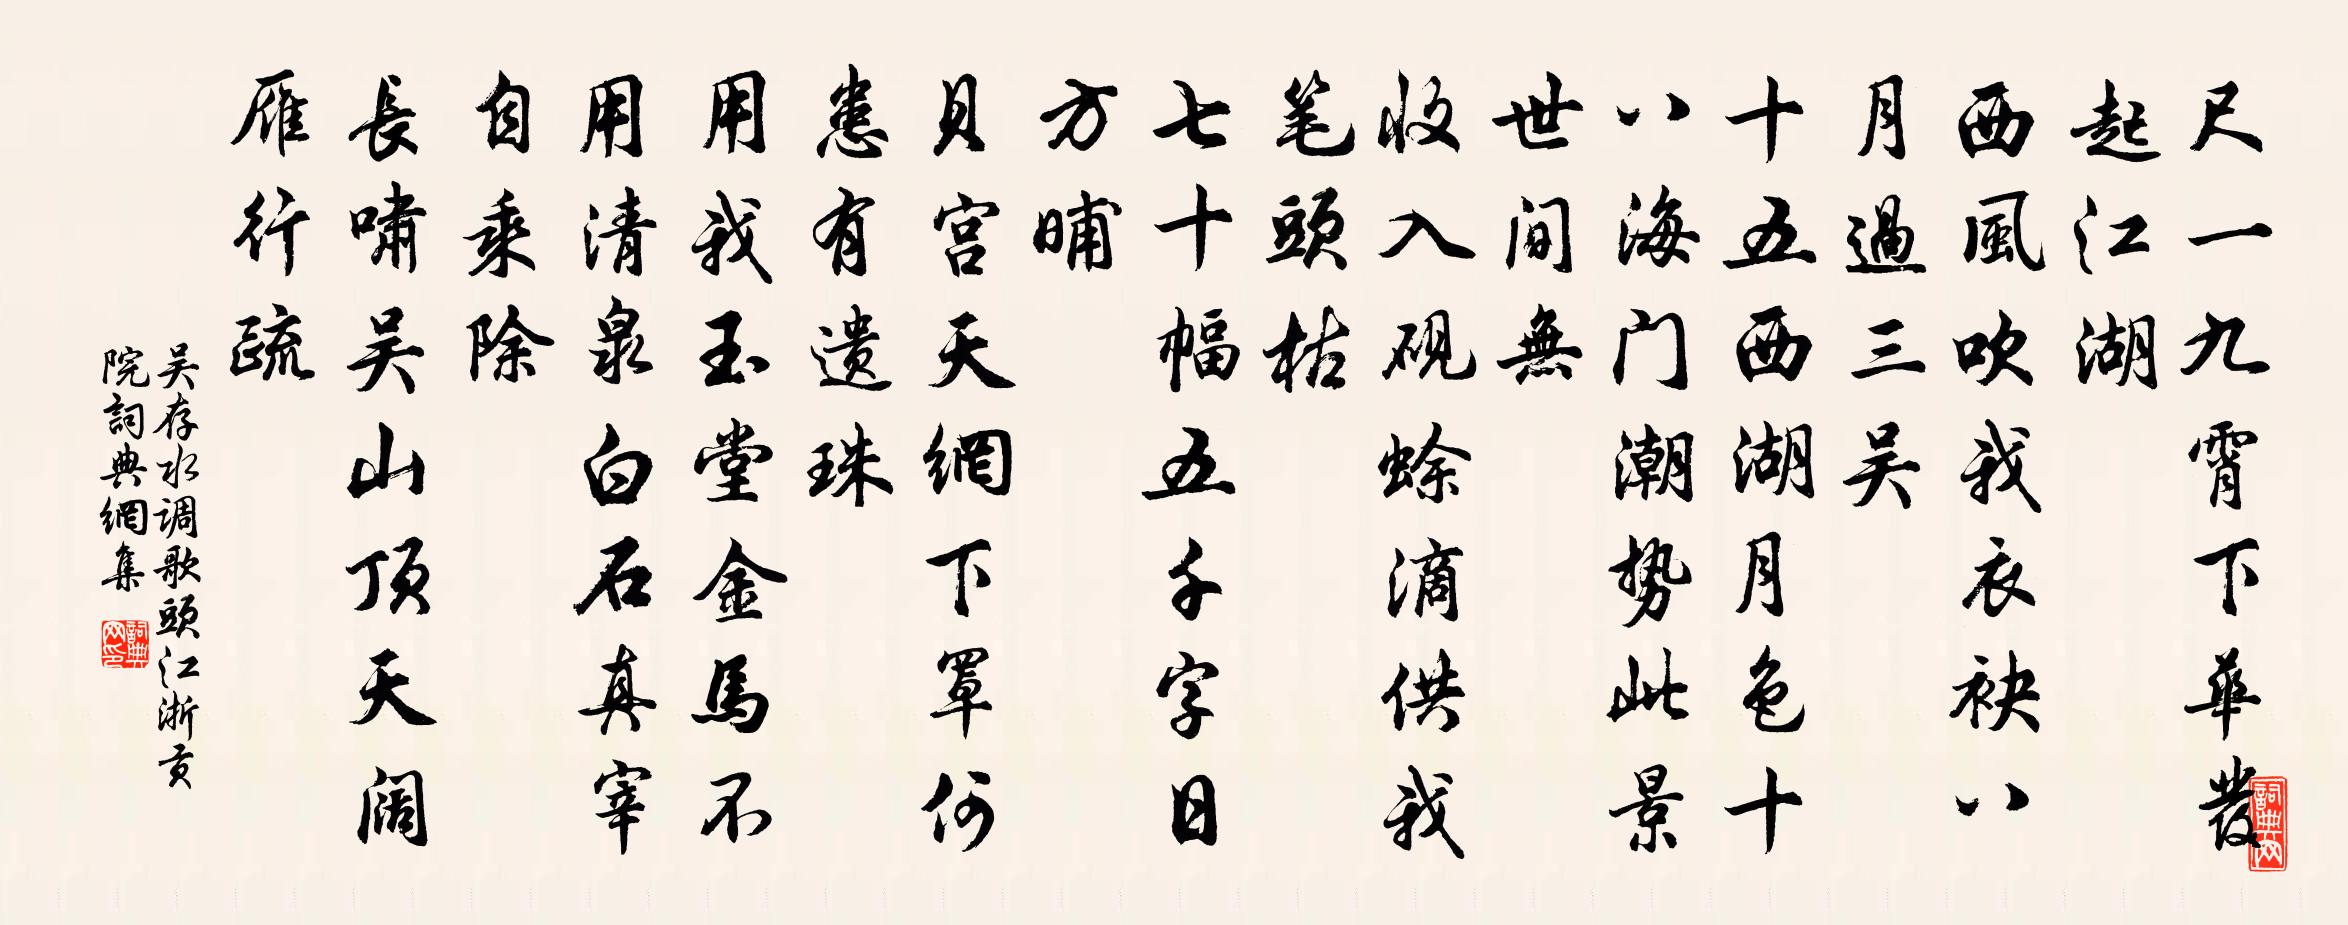 尺一九霄下華發
起江湖
西風吹我衣袂八
月過三吴
十五西湖月色十
八海门潮势此景
世间無
收入砚蜍滴供我
笔頭枯
七十幅五千字日
方晡
貝宫天網下罩何
患有遗珠
用我玉堂金馬不
用清泉白石真宰
自乘除
長啸吴山顶天阔
雁行疏
吴存水调歌頭江浙贡
院詞典網集
詞典网
詞典网印